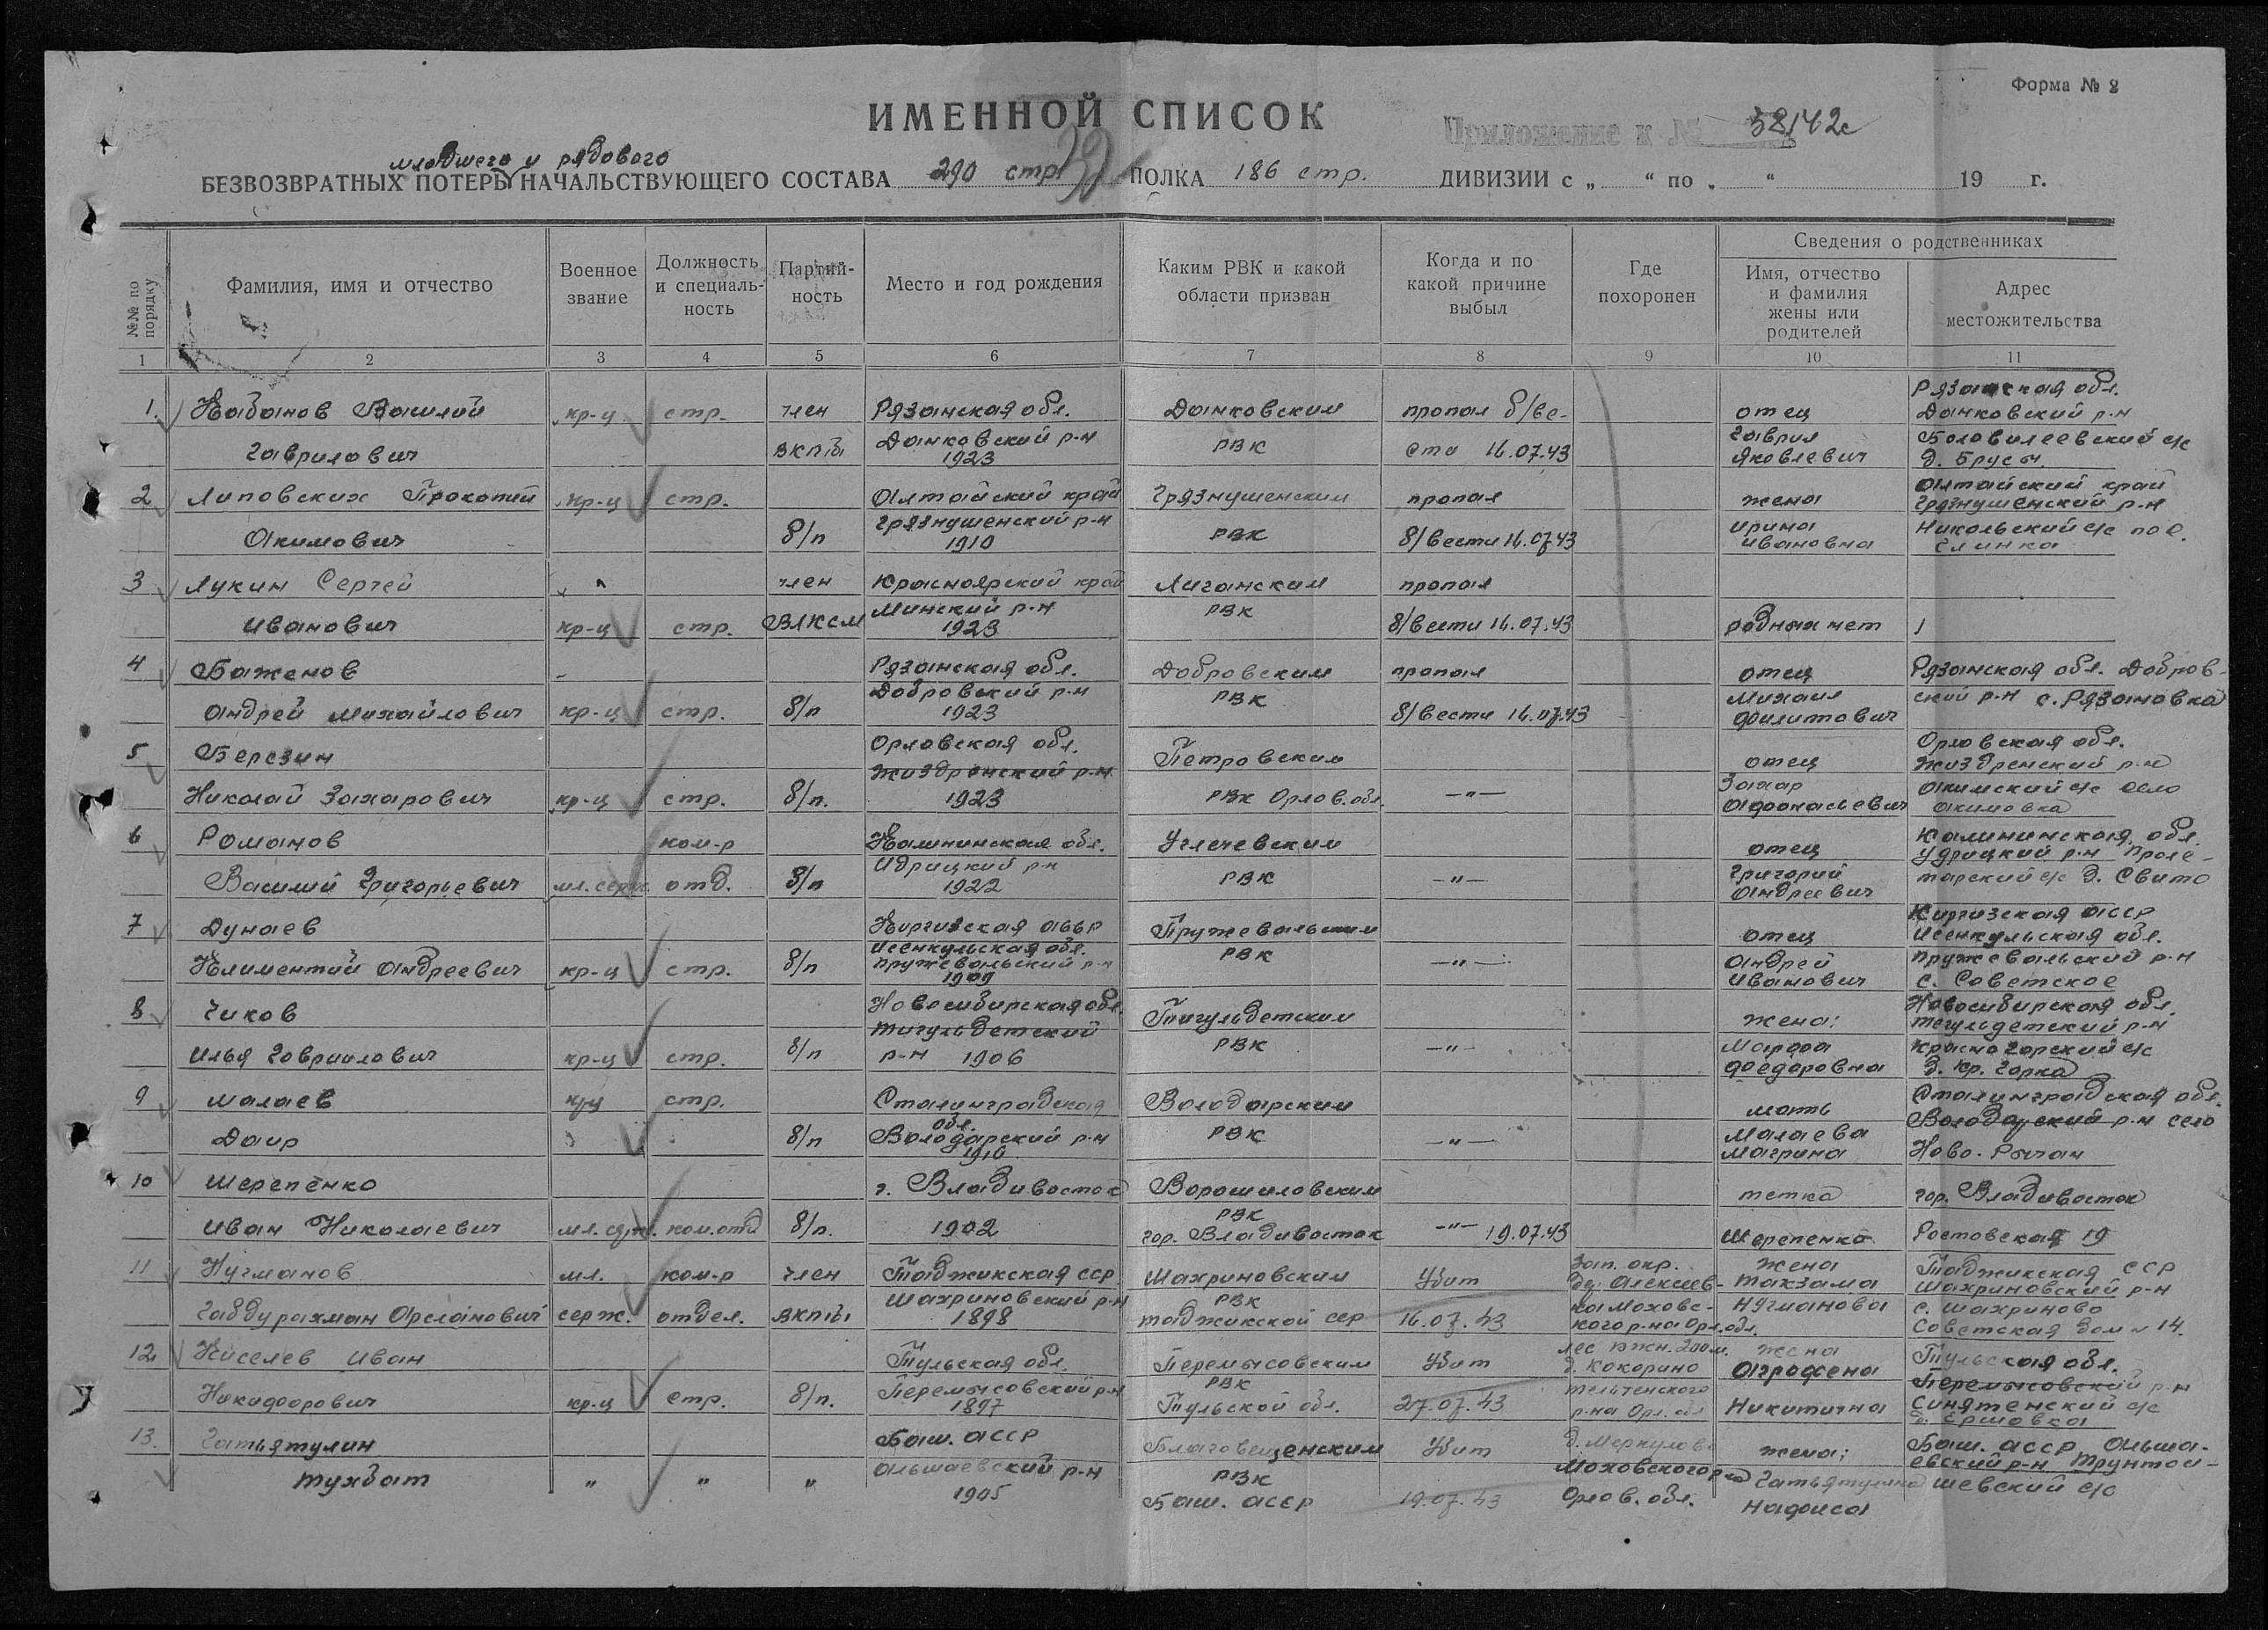 Форма № 2
ИМЕННОЙ СПИСОК
Приложение к № 58142с
младшего и рядового
БЕЗВОЗВРАТНЫХ ПОТЕРЬ НАЧАЛЬСТВУЮЩЕГО СОСТАВА 290 стр ПОЛКА 186 стр. ДИВИЗИИ с „ “ по „ “ 19 г.
№№ по порядку
Фамилия, имя и отчество
Военное звание
Должность и специаль-ность
Партий-ность
Место и год рождения
Каким РВК и какой области призван
Когда и по какой причине выбыл
Где похоронен
Сведения о родственниках
Имя, отчество и фамилия жены или родителей
Адрес местожительства
1 2 3 4 5 6 7 8 9 10 11
Рязанская обл.
1. Кабанов Василий кр-ц стр. член Рязанская обл. Данковским пропал б/ве- отец Данковский р-н
Гаврилович ВКП/б/ Данковский р-н 1923 РВК сти 16.07.43 Гаврил Яковлевич с/с д. Брусы.
2 Липовских Прокопий кр-ц стр. Алтайский край Грязнушенским пропал жена Алтайский край Грязнушенский р-н
Акимович б/п Грязнушенский р-н 1910 РВК б/вести 16.07.43 Ирина Ивановна Никольский с/с пос.
3 Лукин Сергей " член Красноярский край пропал
Иванович кр-ц стр. ВЛКСМ Минский р-н 1923 РВК б/вести 16.07.43 родных нет
4 Баженов Рязанская обл. Добровским пропал отец Рязанская обл. Добров-
Андрей Михайлович кр-ц стр. б/п Добровский р-н 1923 РВК б/вести 16.07.43 Михаил Филиппович ский р-н с. Рязановка
5 Березин Орловская обл. Петровским отец Орловская обл. Жиздренский р-н
Николай Захарович кр-ц стр. б/п. Жиздренский р-н 1923 РВК Орлов. обл. —"— Захар Афанасьевич Акимский с/с село Акимовка
6 Романов ком-р Калининская обл. Угличевским отец Калининская обл. Идрицкий р-н Проле-
Василий Григорьевич мл. серж. отд. б/п Идрицкий р-н 1922 РВК —"— Григорий Андреевич тарский с/с д. Свито
7 Дунаев Киргизская АССР Пружевальским отец Киргизская АССР Исенкульская обл.
Климентий Андреевич кр-ц стр. б/п Исенкульская обл. Пружевальский р-н 1909 РВК —"— Андрей Иванович Пружевальский р-н с. Советское
8 Чиков Новосибирская обл. Тигульдетским жена: Новосибирская обл. Тегульдетский р-н
Илья Гавриилович кр-ц стр. б/п Тигульдетский р-н 1906 РВК —"— Марфа Федоровна Красногорский с/с д. Кр. Горка
9 Малаев кр-ц стр. Сталинградская Володарским мать Сталинградская обл.
Даир б/п обл. Володарский р-н 1910 РВК —"— Малаева Магрина Володарский р-н село Ново-Рычан
10 Шерепенко г. Владивосток Ворошиловским тетка гор. Владивосток
Иван Николаевич мл. серж. ком. отд б/п. 1902 РВК гор. Владивосток —"— 19.07.43 Шерепенко Ростовская 19
11 Нугманов мл. ком-р член Таджикская ССР Шахриновским Убит Зап. окр. дер. Алексеев- жена Макзама Таджикская ССР Шахриновский р-н
Габдурахман Арсланович серж. отдел. ВКП/б/ Шахриновский р-н 1898 РВК Таджикской ССР 16.07.43 ка Моховс- кого р-на Орл. обл. Нугманова с. Шахриново Советская дом № 14.
12 Киселев Иван Тульская обл. Перемысовским Убит лес южн. 200 м. д. Кокорино жена Аграфена Тульская обл.
Никифорович кр-ц стр. б/п. Перемысовский р-н 1897 РВК Тульской обл. 27.07.43 р-на Орл. обл Никитична Перемысовский р-н Синятенский с/с д. Ершовка
13. Гатьятулин Баш. АССР Благовещенским Убит д. Меркулов. жена: Баш. АССР Альша-
Тухват " " " Альшаевский р-н 1905 РВК Баш. АССР 19.07.43 Моховского р-на Орлов. обл. Гатьятулина Нафиса евский р-н Трунтаи- шевский с/с